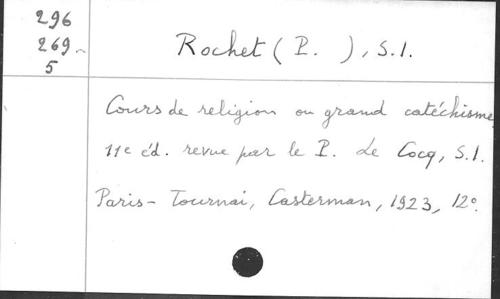 296
269-
5
Rochet (P. ), S.I.
Cours de religion ou grand catéchisme
11e éd. revue par le P. Le Cocq, S.I.
Paris - Tournai, Casterman, 1923, 12°.